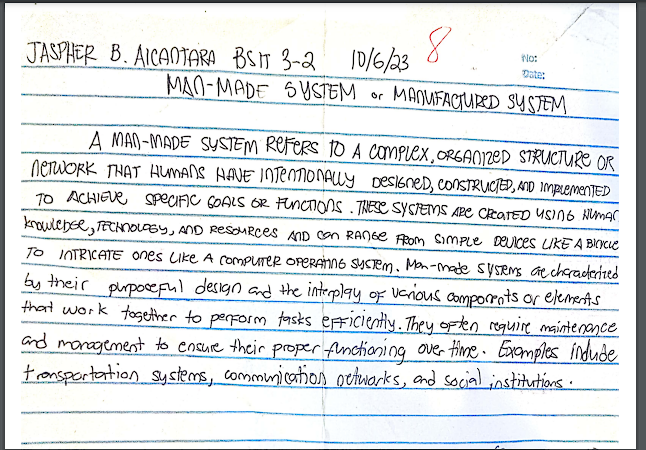 JASPHER B. AlCANTARA BSIT 3-2 10/6/23 8
No:
Date:
MAN-MADE SYSTEM or MANUFACTURED SYSTEM
A MAN-MADE SYSTEM REFERS TO A COMPLEX, ORGANIZED STRUCTURE OR
NETWORK THAT HUMANS HAVE INTENTIONALLY DESIGNED, CONSTRUCTED, AND IMPLEMENTED
TO ACHIEVE SPECIFIC GOALS OR FUNCTIONS. THESE SYSTEMS ARE CREATED USING HUMAN
KNOWLEDGE, TECHNOLOGY, AND RESOURCES AND CAN RANGE FROM SIMPLE DEVICES LIKE A BICYCLE
TO INTRICATE ONES LIKE A COMPUTER OPERATING SYSTEM. Man-made systems are characterized
by their purposeful design and the interplay of various components or elements
that work together to perform tasks efficiently. They often require maintenance
and management to ensure their proper functioning over time. Examples include
transportation systems, communication networks, and social institutions.